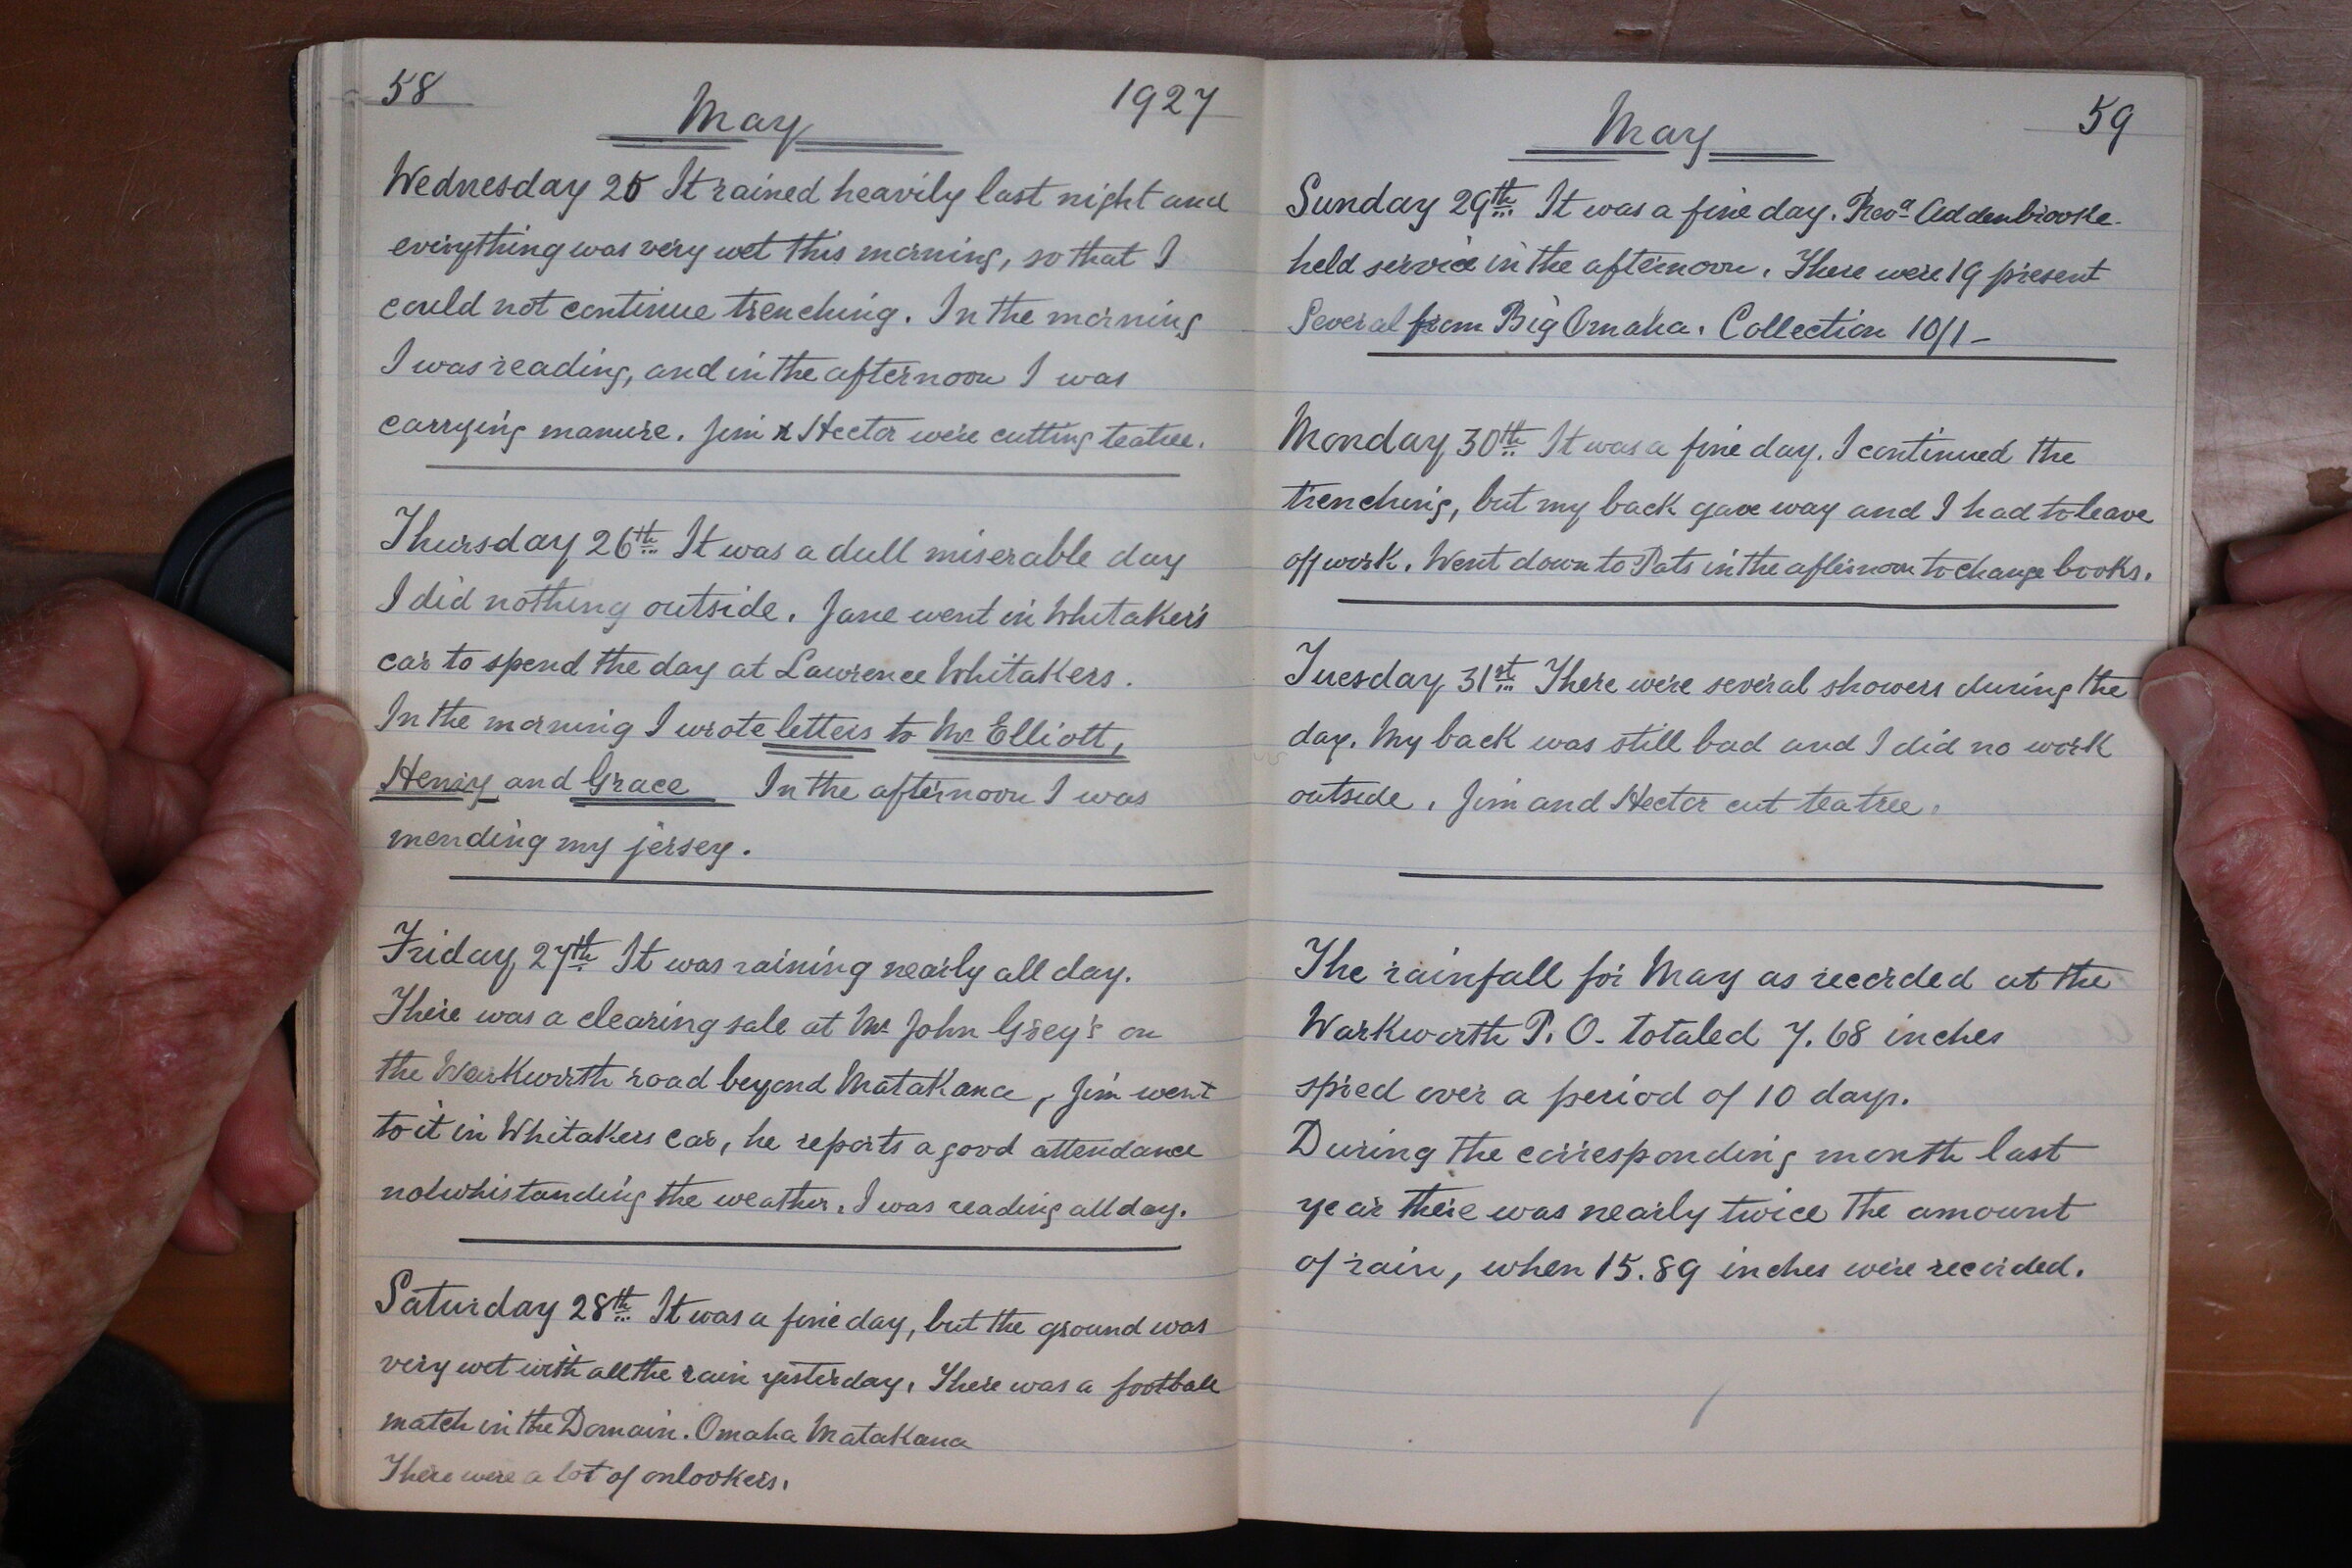 58
May
1927
Wednesday 25 It rained heavily last night and
everything was very wet this morning, so that I
could not continue trenching. In the morning
I was reading, and in the afternoon I was
carrying manure. Jim & Hector were cutting teatree.
Thursday 26th It was a dull miserable day
I did nothing outside. Jane went in Whitaker's
car to spend the day at Lawrence Whitakers.
In the morning I wrote letters to Mr Elliott,
Henry and Grace In the afternoon I was
mending my jersey.
Friday 27th It was raining nearly all day.
There was a clearing sale at Mr John Grey's on
the Warkworth road beyond Matakana, Jim went
to it in Whitakers car, he reports a good attendance
notwhistanding the weather. I was reading all day.
Saturday 28th It was a fine day, but the ground was
very wet with all the rain yesterday. There was a football
match in the Domain. Omaha Matakana
There were a lot of onlookers.
May
59
Sunday 29th It was a fine day. Revd Addenbrooke
held service in the afternoon. There were 19 present
Several from Big Omaha. Collection 10/1-
Monday 30th It was a fine day. I continued the
trenching, but my back gave way and I had to leave
off work. Went down to Pats in the afternoon to change books.
Tuesday 31st There were several showers during the
day. My back was still bad and I did no work
outside. Jim and Hector cut teatree.
The rainfall for May as recorded at the
Warkworth P.O. totaled 7.68 inches
spred over a period of 10 days.
During the corresponding month last
year there was nearly twice the amount
of rain, when 15.89 inches were recorded.